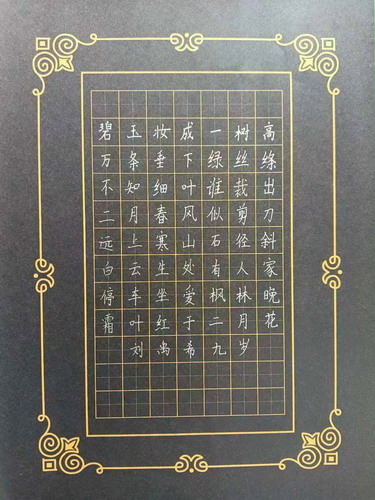 碧玉妆成一树高
万条垂下绿丝绦
不知细叶谁裁出
二月春风似剪刀
远上寒山石径斜
白云生处有人家
停车坐爱枫林晚
霜叶红于二月花
刘禹希九岁